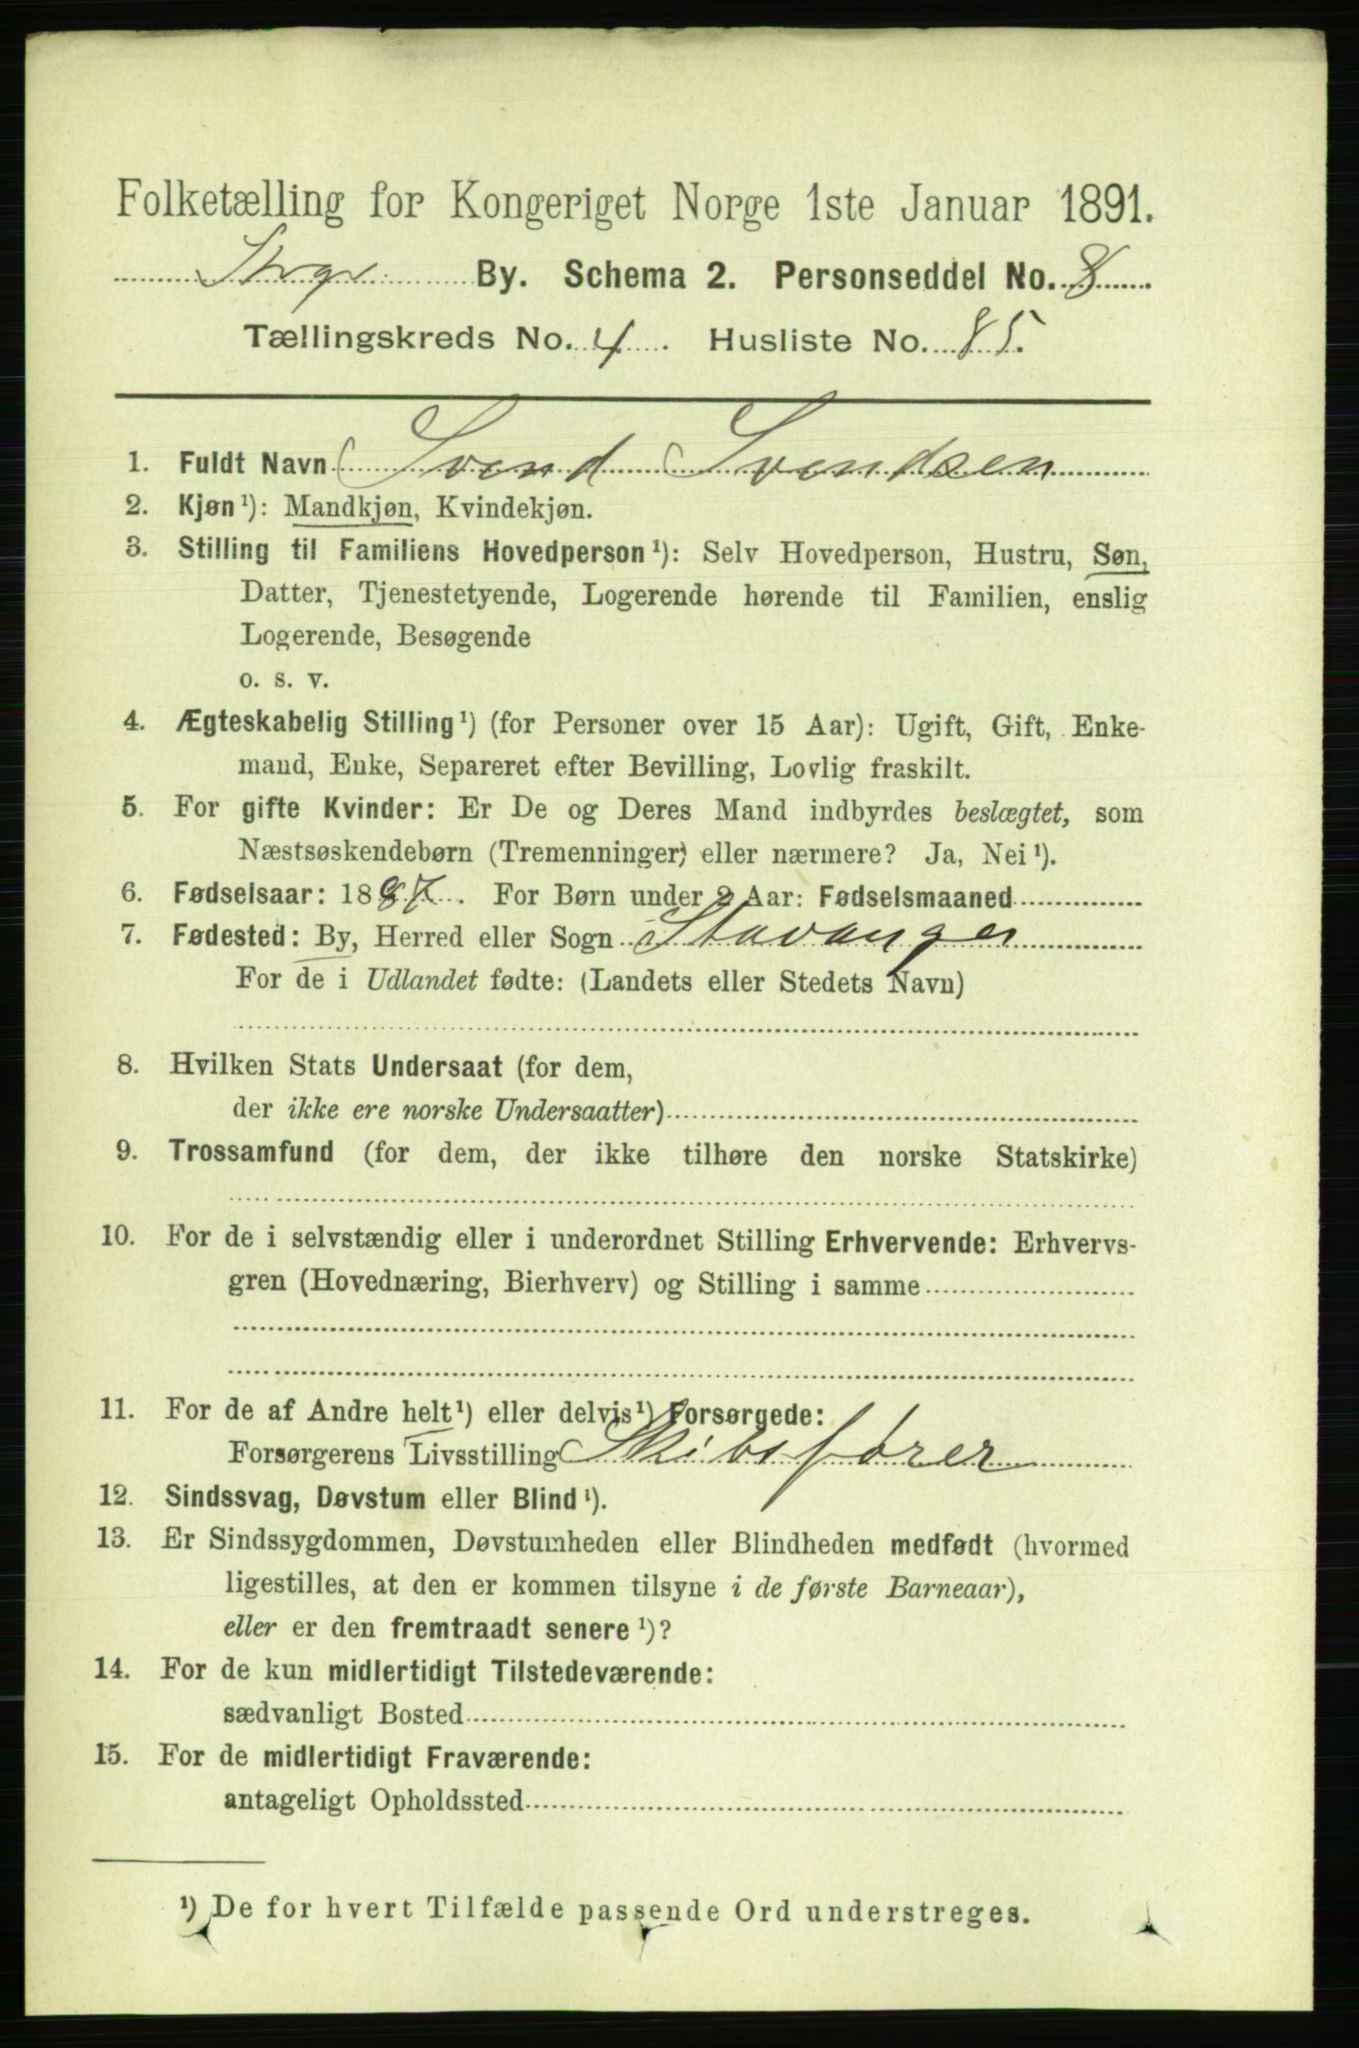 Folketælling for Kongeriget Norge 1ste Januar 1891.
By. Schema 2. Personseddel No. 8
Tællingskreds No. 4. Husliste No. 85.
1. Fuldt Navn Svend Svendsen
2. Kjøn¹): Mandkjøn, Kvindekjøn.
3. Stilling til Familiens Hovedperson¹): Selv Hovedperson, Hustru, Søn,
Datter, Tjenestetyende, Logerende hørende til Familien, enslig
Logerende, Besøgende
o. s. v.
4. Ægteskabelig Stilling¹) (for Personer over 15 Aar): Ugift, Gift, Enke-
mand, Enke, Separeret efter Bevilling, Lovlig fraskilt.
5. For gifte Kvinder: Er De og Deres Mand indbyrdes beslægtet, som
Næstsøskendebørn (Tremenninger) eller nærmere? Ja, Nei¹).
6. Fødselsaar: 1887. For Børn under 2 Aar: Fødselsmaaned
7. Fødested: By, Herred eller Sogn Stavanger
For de i Udlandet fødte: (Landets eller Stedets Navn)
8. Hvilken Stats Undersaat (for dem,
der ikke ere norske Undersaatter)
9. Trossamfund (for dem, der ikke tilhøre den norske Statskirke)
10. For de i selvstændig eller i underordnet Stilling Erhvervende: Erhvervs-
gren (Hovednæring, Bierhverv) og Stilling i samme
11. For de af Andre helt¹) eller delvis¹) Forsørgede:
Forsørgerens Livsstilling Skibsfører
12. Sindssvag, Døvstum eller Blind¹).
13. Er Sindssygdommen, Døvstumheden eller Blindheden medfødt (hvormed
ligestilles, at den er kommen tilsyne i de første Barneaar),
eller er den fremtraadt senere¹)?
14. For de kun midlertidigt Tilstedeværende:
sædvanligt Bosted
15. For de midlertidigt Fraværende:
antageligt Opholdssted
¹) De for hvert Tilfælde passende Ord understreges.